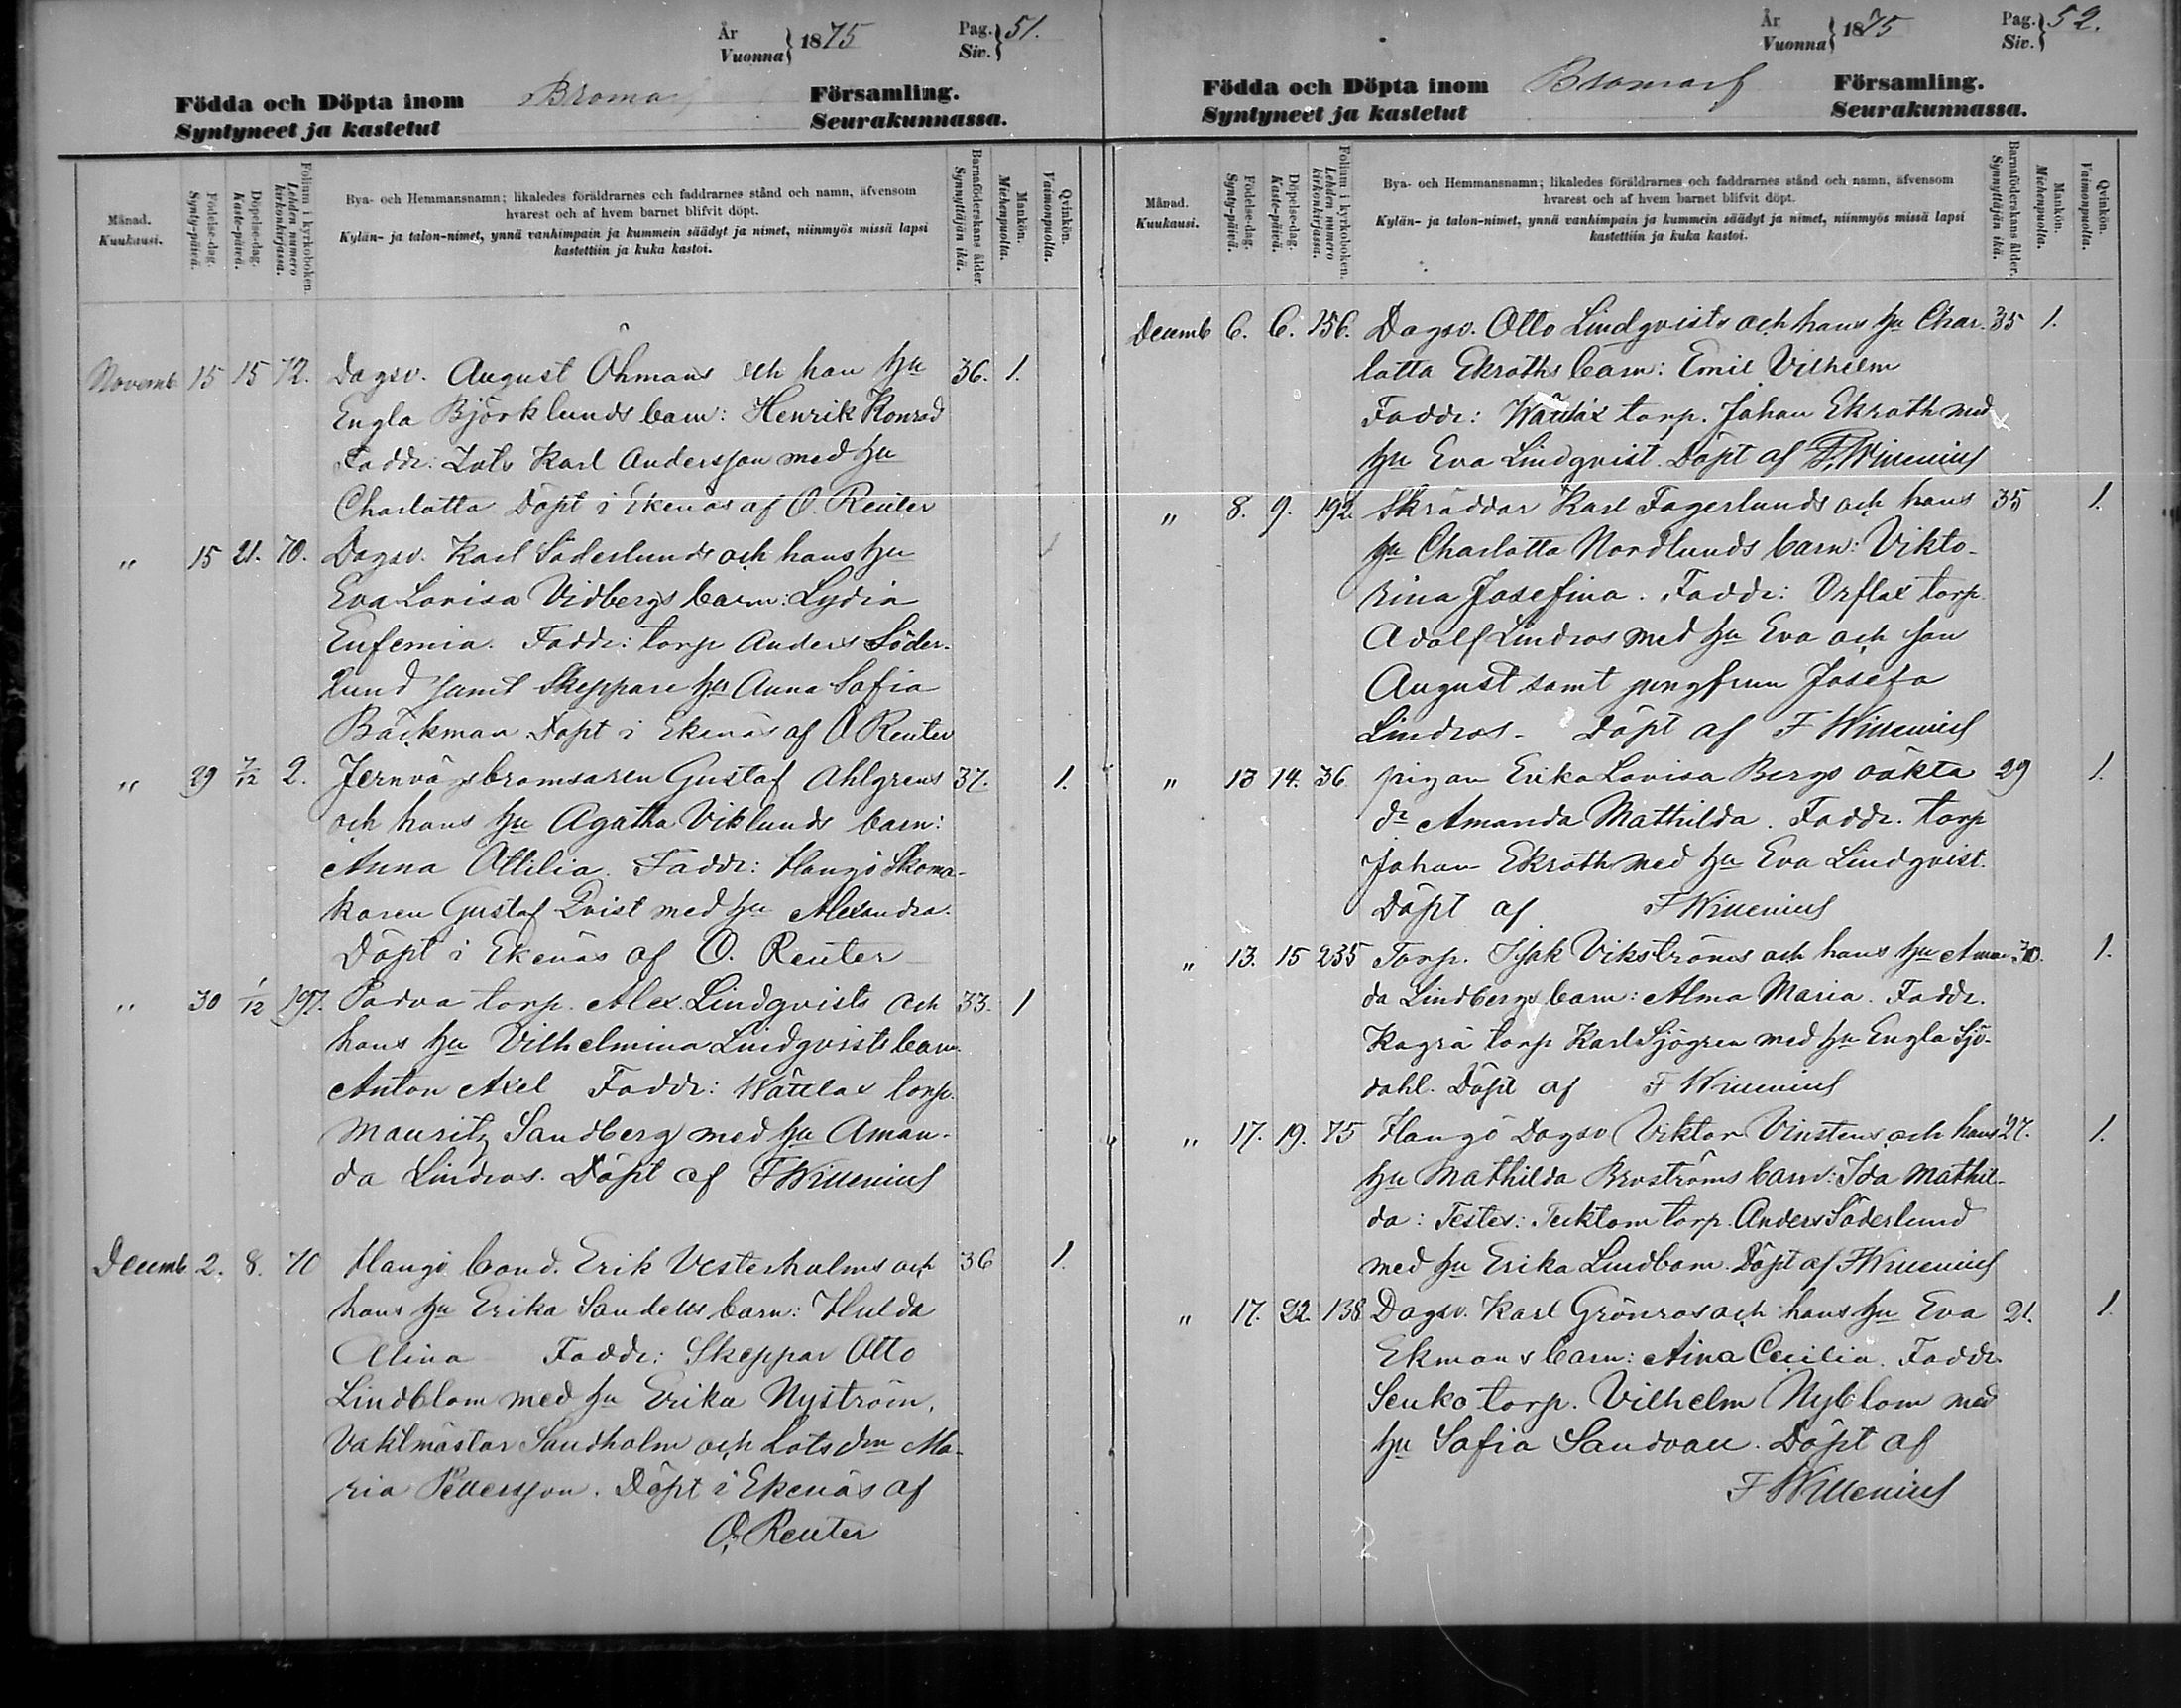 År
Vuonna } 1875
Pag.
Siv. } 51.
Födda och Döpta inom Bromarf Församling.
Syntyneet ja kastetut Seurakunnassa.
Månad.
Kuukausi.
Födelse-dag.
Synty-päivä.
Döpelse-dag.
Kaste-päivä.
Folium i kyrkoboken.
Lehden numero kirkonkirjassa.
Bya- och Hemmansnamn; likaledes föräldrarnes och faddrarnes stånd och namn, äfvensom
hvarest och af hvem barnet blifvit döpt.
Kylän- ja talon-nimet, ynnä vanhimpain ja kummein säädyt ja nimet, niinmyös missä lapsi
kastettiin ja kuka kastoi.
Barnaföderskans ålder.
Synnyttäjän ikä.
Mankön.
Miehenpuolta.
Qvinkön.
Vaimonpuolta.
Novemb 15 15 72. Dagsv. August Öhmans och han hu 36. 1.
Engla Björklunds barn: Henrik Konrad
Faddr: Lots Karl Andersson med hu
Charlotta Döpt i Ekenäs af O. Reuter
" 15 21. 70. Dagsv. Karl Söderlunds och hans hu
Eva Lovisa Vidbergs barn: Lydia
Eufemia. Faddr: torp Anders Söder-
lund samt Skeppare hu Anna Sofia
Bäckman Döpt i Ekenäs af O Reuter
" 29 7/12 2. Jernvägsbromsaren Gustaf Ahlgrens 37. 1.
och hans hu Agatha Viklunds barn:
Anna Ottilia. Faddr: Hangö Skoma-
karen Gustaf Qvist med hu Alexandra.
Döpt i Ekenäs af O. Reuter
" 30 1/12 197. Padva torp. Alex. Lindqvists och 33. 1
hans hu Vilhelmina Lindqvists barn
Anton Axel Faddr: Wättlax torp.
Mauritz Sandberg med hu Aman-
da Lindros. Döpt af F Willenius
Decemb 2. 8. 70 Hangö Cond. Erik Vesterholms och 36 1.
hans hu Erika Sandells barn: Hulda
Elina Faddr: Skeppar Otto
Lindblom med hu Erika Nyström,
Vaktmästar Sandholm och Lots dm Ma-
ria Pettersson. Döpt i Ekenäs af
O. Reuter
År
Vuonna } 1875
Pag.
Siv. } 52.
Födda och Döpta inom Bromarf Församling.
Syntyneet ja kastetut Seurakunnassa.
Månad.
Kuukausi.
Födelse-dag.
Synty-päivä.
Döpelse-dag.
Kaste-päivä.
Folium i kyrkoboken.
Lehden numero kirkonkirjassa.
Bya- och Hemmansnamn; likaledes föräldrarnes och faddrarnes stånd och namn, äfvensom
hvarest och af hvem barnet blifvit döpt.
Kylän- ja talon-nimet, ynnä vanhimpain ja kummein säädyt ja nimet, niinmyös missä lapsi
kastettiin ja kuka kastoi.
Barnaföderskans ålder.
Synnyttäjän ikä.
Mankön.
Miehenpuolta.
Qvinkön.
Vaimonpuolta.
Decemb 6. 6. 156. Dagsv. Otto Lindqvists och hans hu Char- 35 1.
lotta Ekroths barn: Emil Vilhelm
Faddr: Wättlax torp. Johan Ekroth med
hu Eva Lindqvist. Döpt af F. Willenius
" 8. 9. 192. Skräddar Karl Fagerlunds och hans 35 1.
hu Charlotta Nordlunds barn: Vikto-
rina Josefina. Faddr: Orflax torp.
Adolf Lindros med hu Eva och son
August samt jungfrun Josefa
Lindros- Döpt af F Willenius
" 13 14. 36. pigan Erika Lovisa Bergs oäkta 29 1.
dr Amanda Mathilda. Faddr. torp
Johan Ekroth med hu Eva Lindqvist.
Döpt af F Willenius
" 13. 15 235 Torp. Isak Vikströms och hans hu Aman- 30. 1.
da Lindbergs barn: Alma Maria. Faddr.
Kagra torp Karl Sjögren med hu Engla Sjö-
dahl. Döpt af F Willenius
" 17. 19. 75 Hangö Dagsv Viktor Vinstens och hans 27. 1.
hu Mathilda Broströms barn: Ida Mathil-
da: Testes: Tecktom torp. Anders Söderlund
med hu Erika Lindbom. Döpt af F Willenius
" 17. 22. 138 Dagsv. Karl Grönros och hans hu Eva 21. 1.
Ekmans barn: Aina Cecilia. Faddr
Senko torp. Vilhelm Nyblom med
hu Sofia Sandvall. Döpt af
F Willenius